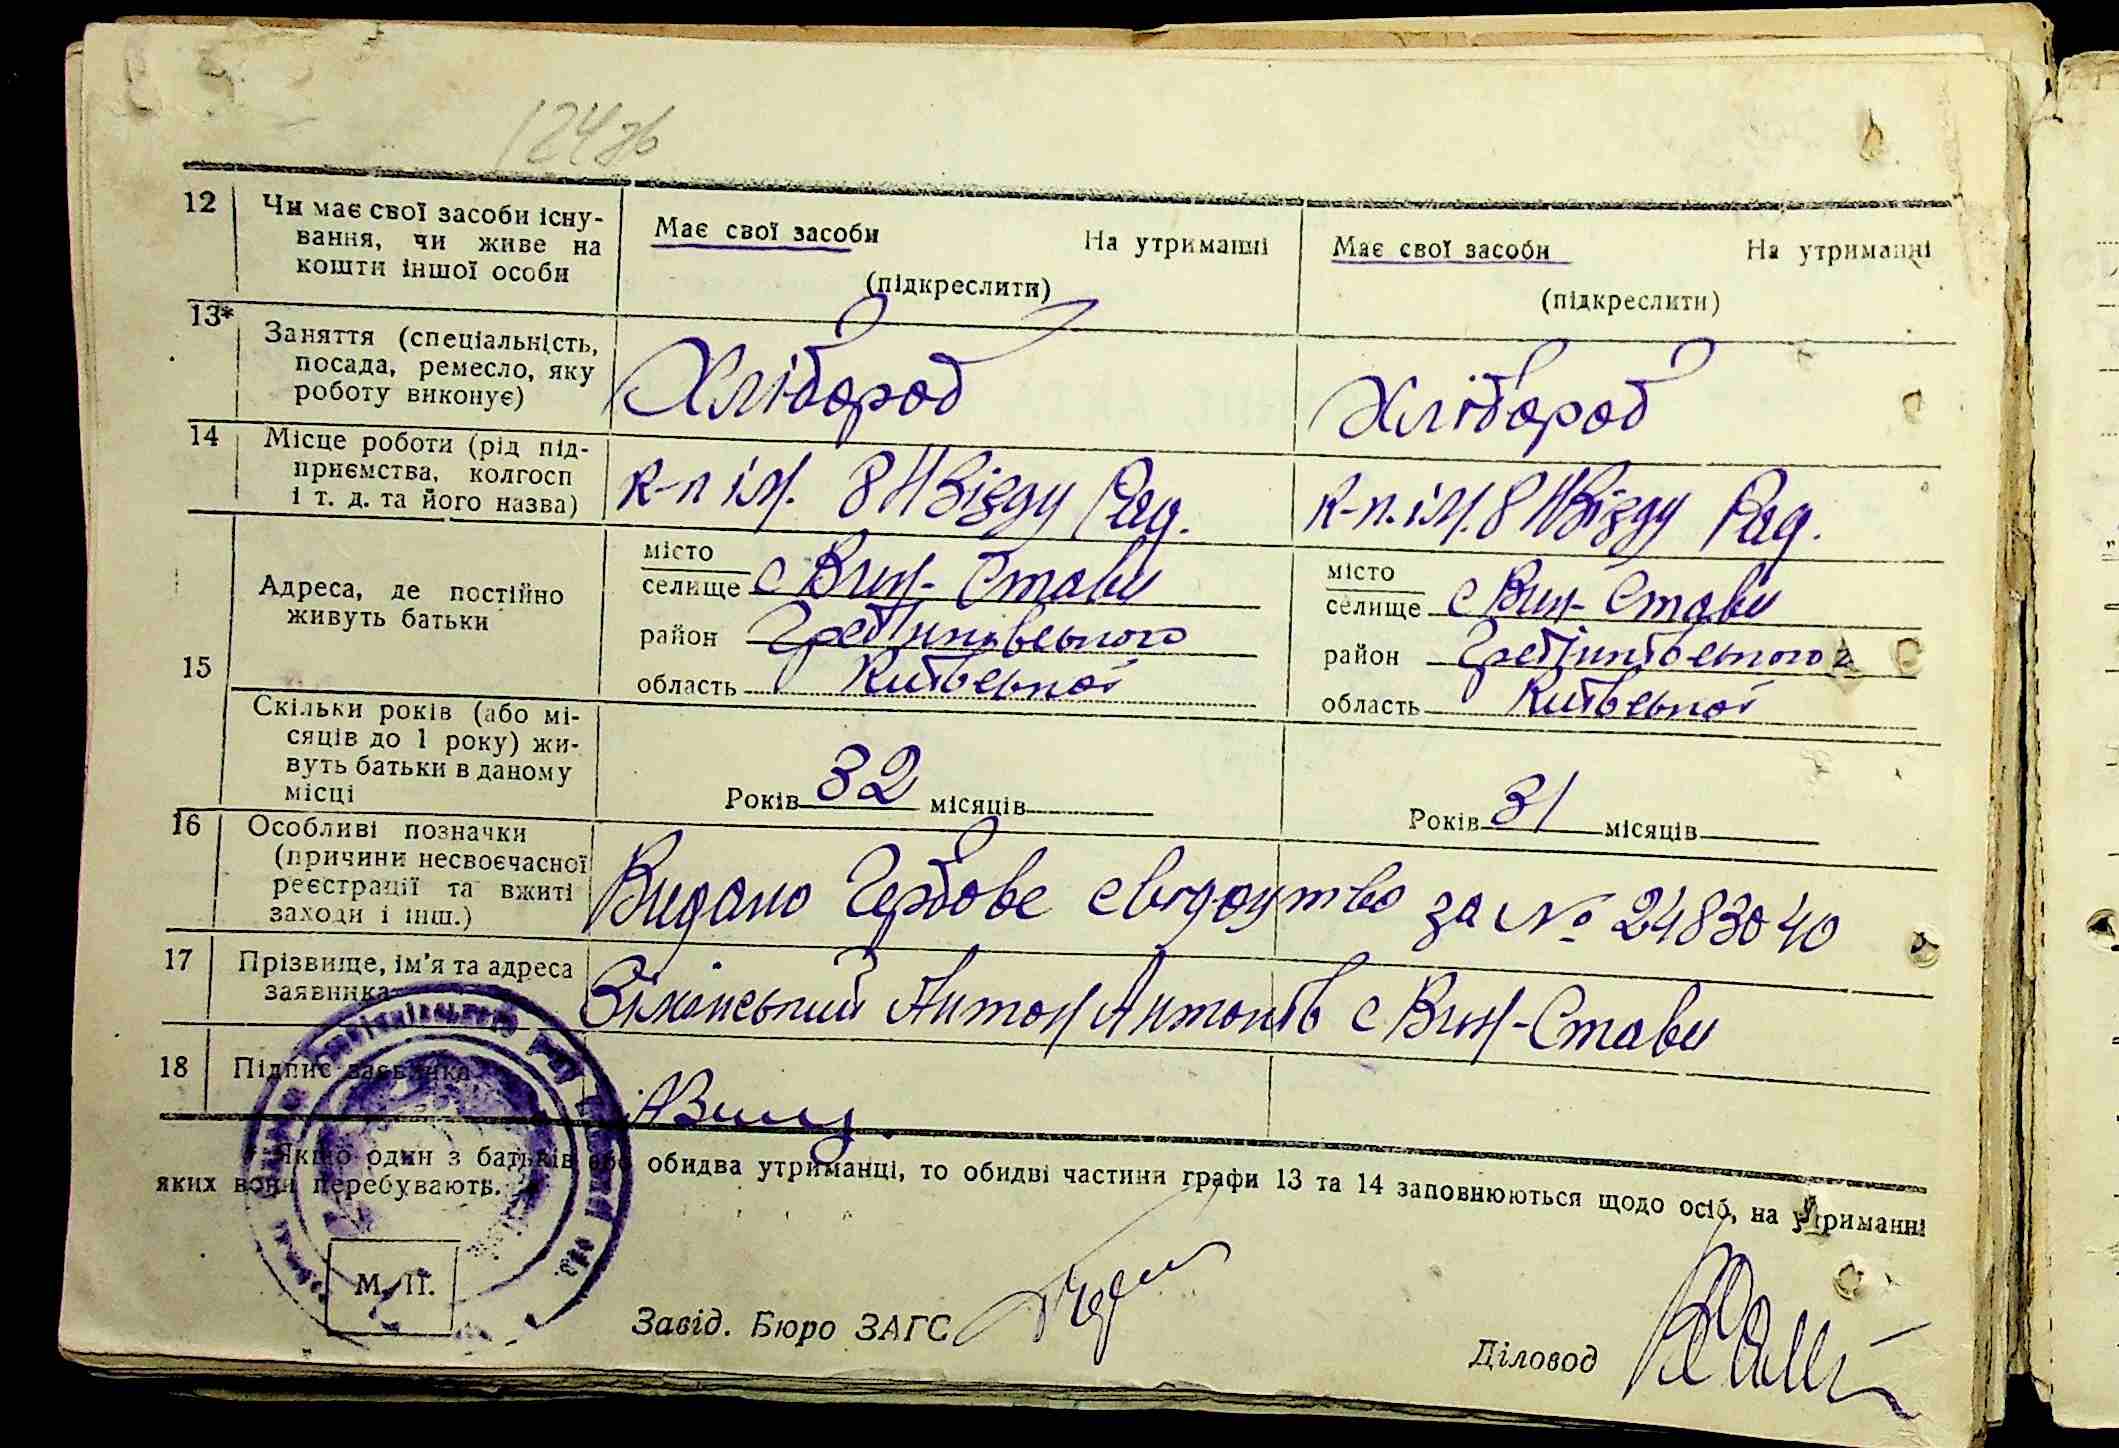 124зв
12 Чи має свої засоби існу-
вання, чи живе на
кошти іншої особи
Має свої засоби На утриманні
(підкреслити)
Має свої засоби На утриманні
(підкреслити)
13* Заняття (спеціальність,
посада, ремесло, яку
роботу виконує)
Хлібороб
Хлібороб
14 Місце роботи (рід під-
приємства, колгосп
і т. д. та його назва)
к-п ім. 8 Нвізду Рад.
к-п. ім. 8 Нвізду Рад.
15
Адреса, де постійно
живуть батьки
місто
селище с Вин-Стави
район
область Київської
місто
селище с Вин-Стави
район
область Київської
Скільки років (або мі-
сяців до 1 року) жи-
вуть батьки в даному
місці
Років 32 місяців
Років 31 місяців
16 Особливі позначки
(причини несвоєчасної
реєстрації та вжиті
заходи і інш.)
Видано Гербове свідоцтво за № 2483040
17 Прізвище, ім'я та адреса
заявника
Антон Антонів с Вин-Стави
18 Підпис заявника
* Якщо один з батьків або обидва утриманці, то обидві частини графи 13 та 14 заповнюються щодо осіб, на утриманні
яких вони перебувають.
М. П.
Завід. Бюро ЗАГС
Діловод